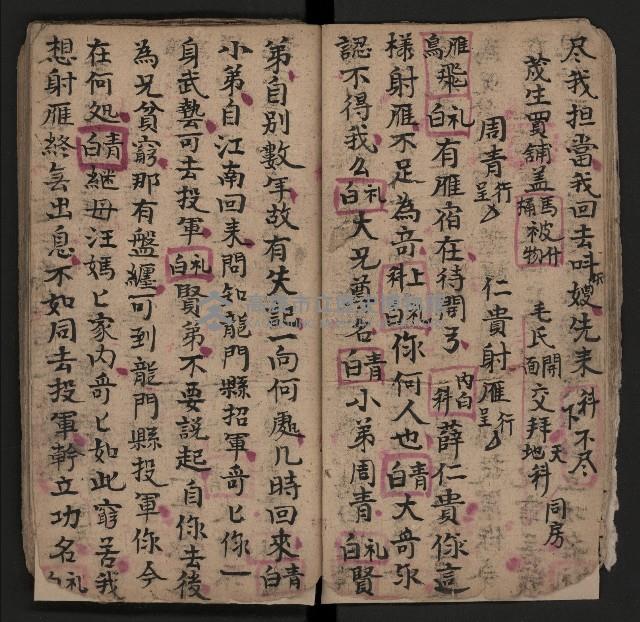 尽我担當我回去叫嫂先来 科下不尽
茂生買舖盖 馬桶 被什物 毛氏開面交拜天地科 同房
周青行呈 仁貴射雁行呈
雁鳥飛 礼白 有雁宿在待開弓 内白科 薛仁貴你這
樣射雁不足為奇 上科 礼白 你何人也 青白 大奇你
認不得我么 礼白 大兄尊名 青白 小弟周青 礼白 賢
弟自別數年故有失記一向何處几時回來 青白
小弟自江南回来問知龍門縣招軍奇匕你一
身武藝可去投軍 礼白 賢弟不要說起自你去後
為兄貧窮那有盤纏可到龍門縣投軍你今
在何処 青白 継母汪媽匕家内奇匕如此窮苦我
想射雁終無出息不如同去投軍幹立功名 礼白